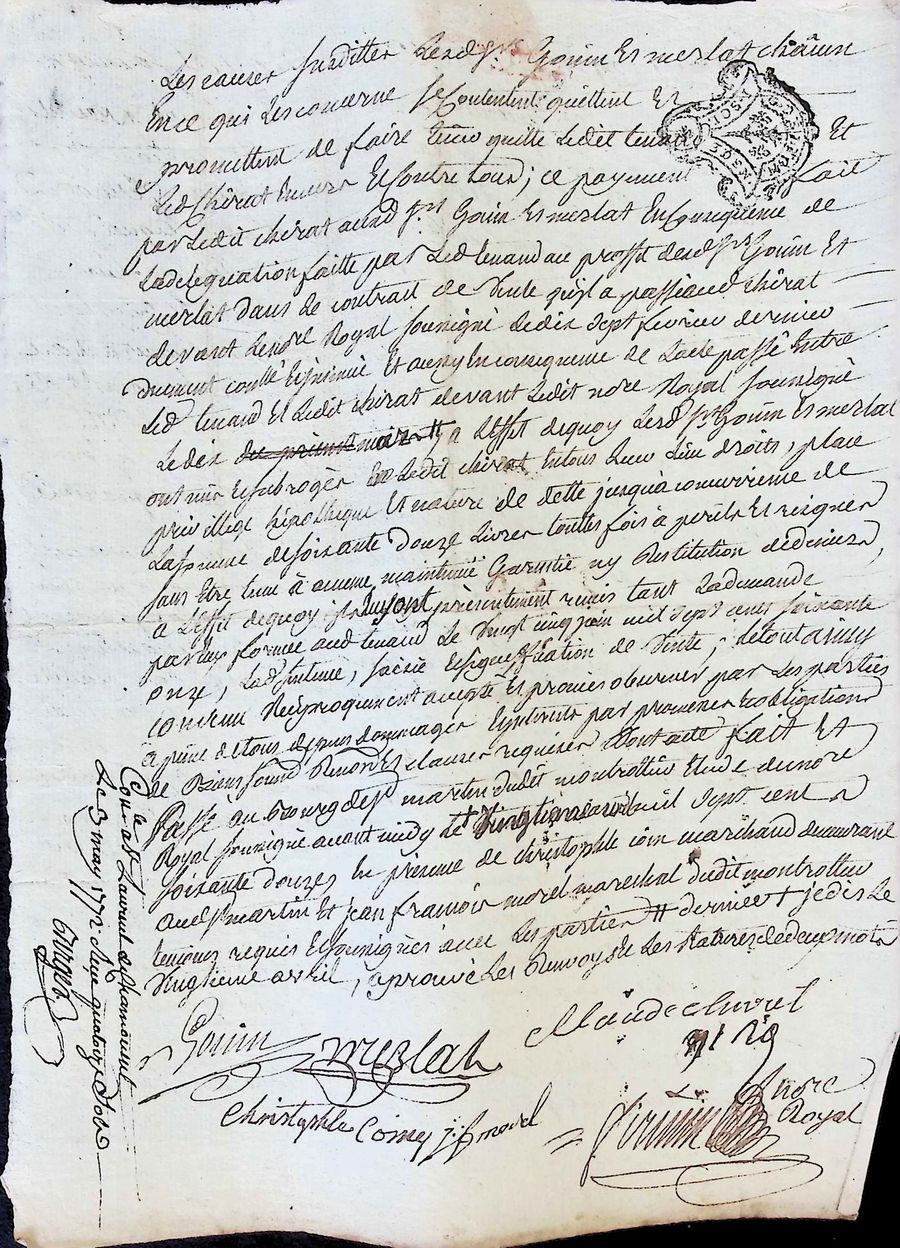 Les causes susdittes Lesd. Srs Gouin Et merlat chacun
En ce qui Les concerne se Contentent quittent Et
promettent de faire tenir quitte Ledit tenaud Et
Led. Chirat Envers Et Contre tous; ce payement fait
par Ledit chirat auxd. Srs Gouin Et merlat En Consequence de
La delegation faitte par Led. tenaud au proffit desd. Srs Gouin Et
merlat Dans Le contrat de Vente qu'il a passé aud. chirat
devant Le nore Royal soussigné Le dix sept fevrier dernier
Duement conllé Et insinué Et aussy En consequence de L'acte passé Entre
Led. tenaud Et Ledit chirat devant Ledit nore Royal soussigné
Le dix a L'effet de quoy Lesd. Srs Gouin Et merlat
ont mis Et subrogés Ledit chirat En tous Leurs Lieu droits, place
privillege hipotheque Et nature de dette jusqu'a concurrence de
La somme de soixante douze Livres touttes fois a perils Et risques
sans Etre tenu à aucune maintenue Garantie ny Restitution de deniers,
a L'effet de quoy ils Luy ont présentement remis tant La demande
par eux formée aud. tenaud Le Vingt cinq juin mil sept cents soixante
onze, Lad. Sentence, saisie Et signiffication de Vente; Le tout ainsy
convenu Reciproquement accepté Et promis observer par Les parties
a peine de tous depens dommages Interests par promesses Et obligations
de Biens soumd. Renonc. Et clauses requises Dont acte fait Et
Passé au bourg de St martin dudit montrottier Etude du nore
Royal soussigné avant midy Le mil sept cent
soixante douze, En presence de christophle coin marchand demeurant
aud. St martin Et jean françois morel marechal dudit montrottier
temoins requis Et soussignés avec Les parties # dernier + je dis Le
Vingtieme avril, aprouvé Les Renvoys Et Les Ratures de deux mots
Gouin merlat Claude chirat
Christophle Coin j. f. morel
nore Royal
Conllé a St Laurent de chamousset
Le 3 may 1772 Reçu quatorze sols